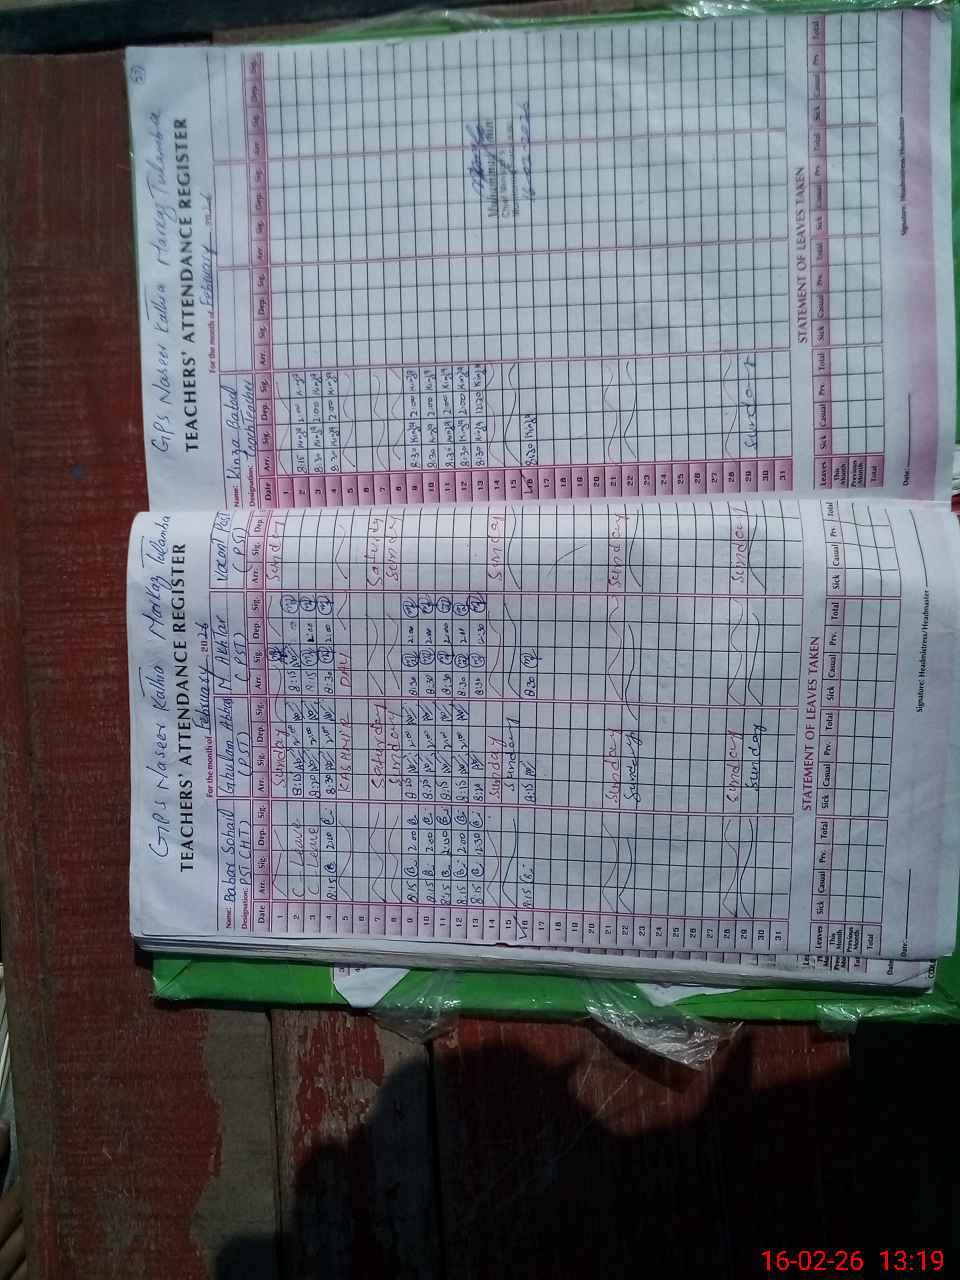 GPS Naseer Kathia Markaz Tulamba
TEACHERS' ATTENDANCE REGISTER
For the month of February 2026
Name: Babar Sohail Ghulam Abbas M Akhtar Vacant Post
Designation: PST (HT) (PST) (PST) (PST)
Date Arr. Sig. Dep. Sig. Arr. Sig. Dep. Sig. Arr. Sig. Dep. Sig. Arr. Sig. Dep.
1 Sunday Sunday
2 C Leave 8:15
3 C Leave 8:15 2:00
4 8:15 2:00 8:30 2:00 8:30 2:00
5 KASHMIR DAY
6
7 Saturday Saturday
8 Sunday Sunday
9 8:15 2:00 2:00 8:30 2:00
10 8:15 2:00 8:15 2:00 8:30 2:00
11 8:15 2:00 8:15 2:00 8:30 2:00
12 8:15 2:00 8:15 2:00 8:30 2:00
13 8:15 12:30 8:30 12:30
14 Sunday Sunday
15 Sunday
16 8:15 8:15 8:30
17
18
19
20
21 Sunday Sunday
22 Sunday
23
24
25
26
27
28 Sunday Sunday
29 Sunday
30
31
STATEMENT OF LEAVES TAKEN
Leaves Sick Casual Prv. Total Sick Casual Prv. Total Sick Casual Prv. Total Sick Casual Prv. Total
This Month
Previous Month
Total
Date: Signature: Headmistress/Headmaster
53
GPS Naseer Kathia Markaz Tulamba
TEACHERS' ATTENDANCE REGISTER
For the month of February
Name: Kinza Batool
Designation: Tech Teacher
Date Arr. Sig. Dep. Sig. Arr. Sig. Dep. Sig. Arr. Sig. Dep. Sig. Arr. Sig. Dep. Sig.
1
2 8:15 Kinza 2:00 Kinza
3 8:30 Kinza 2:00 Kinza
4 8:30 Kinza 2:00 Kinza
5
6
7
8
9 8:30 Kinza 2:00 Kinza
10 8:30 Kinza 2:00 Kinza
11 8:30 Kinza 2:00 Kinza
12 8:30 Kinza 2:00 Kinza
13 8:30 Kinza 12:30 Kinza
14
15
16 8:30 Kinza
17
18
19
20
21
22
23
24
25
26
27
28
29 Sunday
30
31
16-02-2026
STATEMENT OF LEAVES TAKEN
Leaves Sick Casual Prv. Total Sick Casual Prv. Total Sick Casual Prv. Total Sick Casual Prv. Total
This Month
Previous Month
Total
Date: Signature: Headmistress/Headmaster
16-02-26 13:19